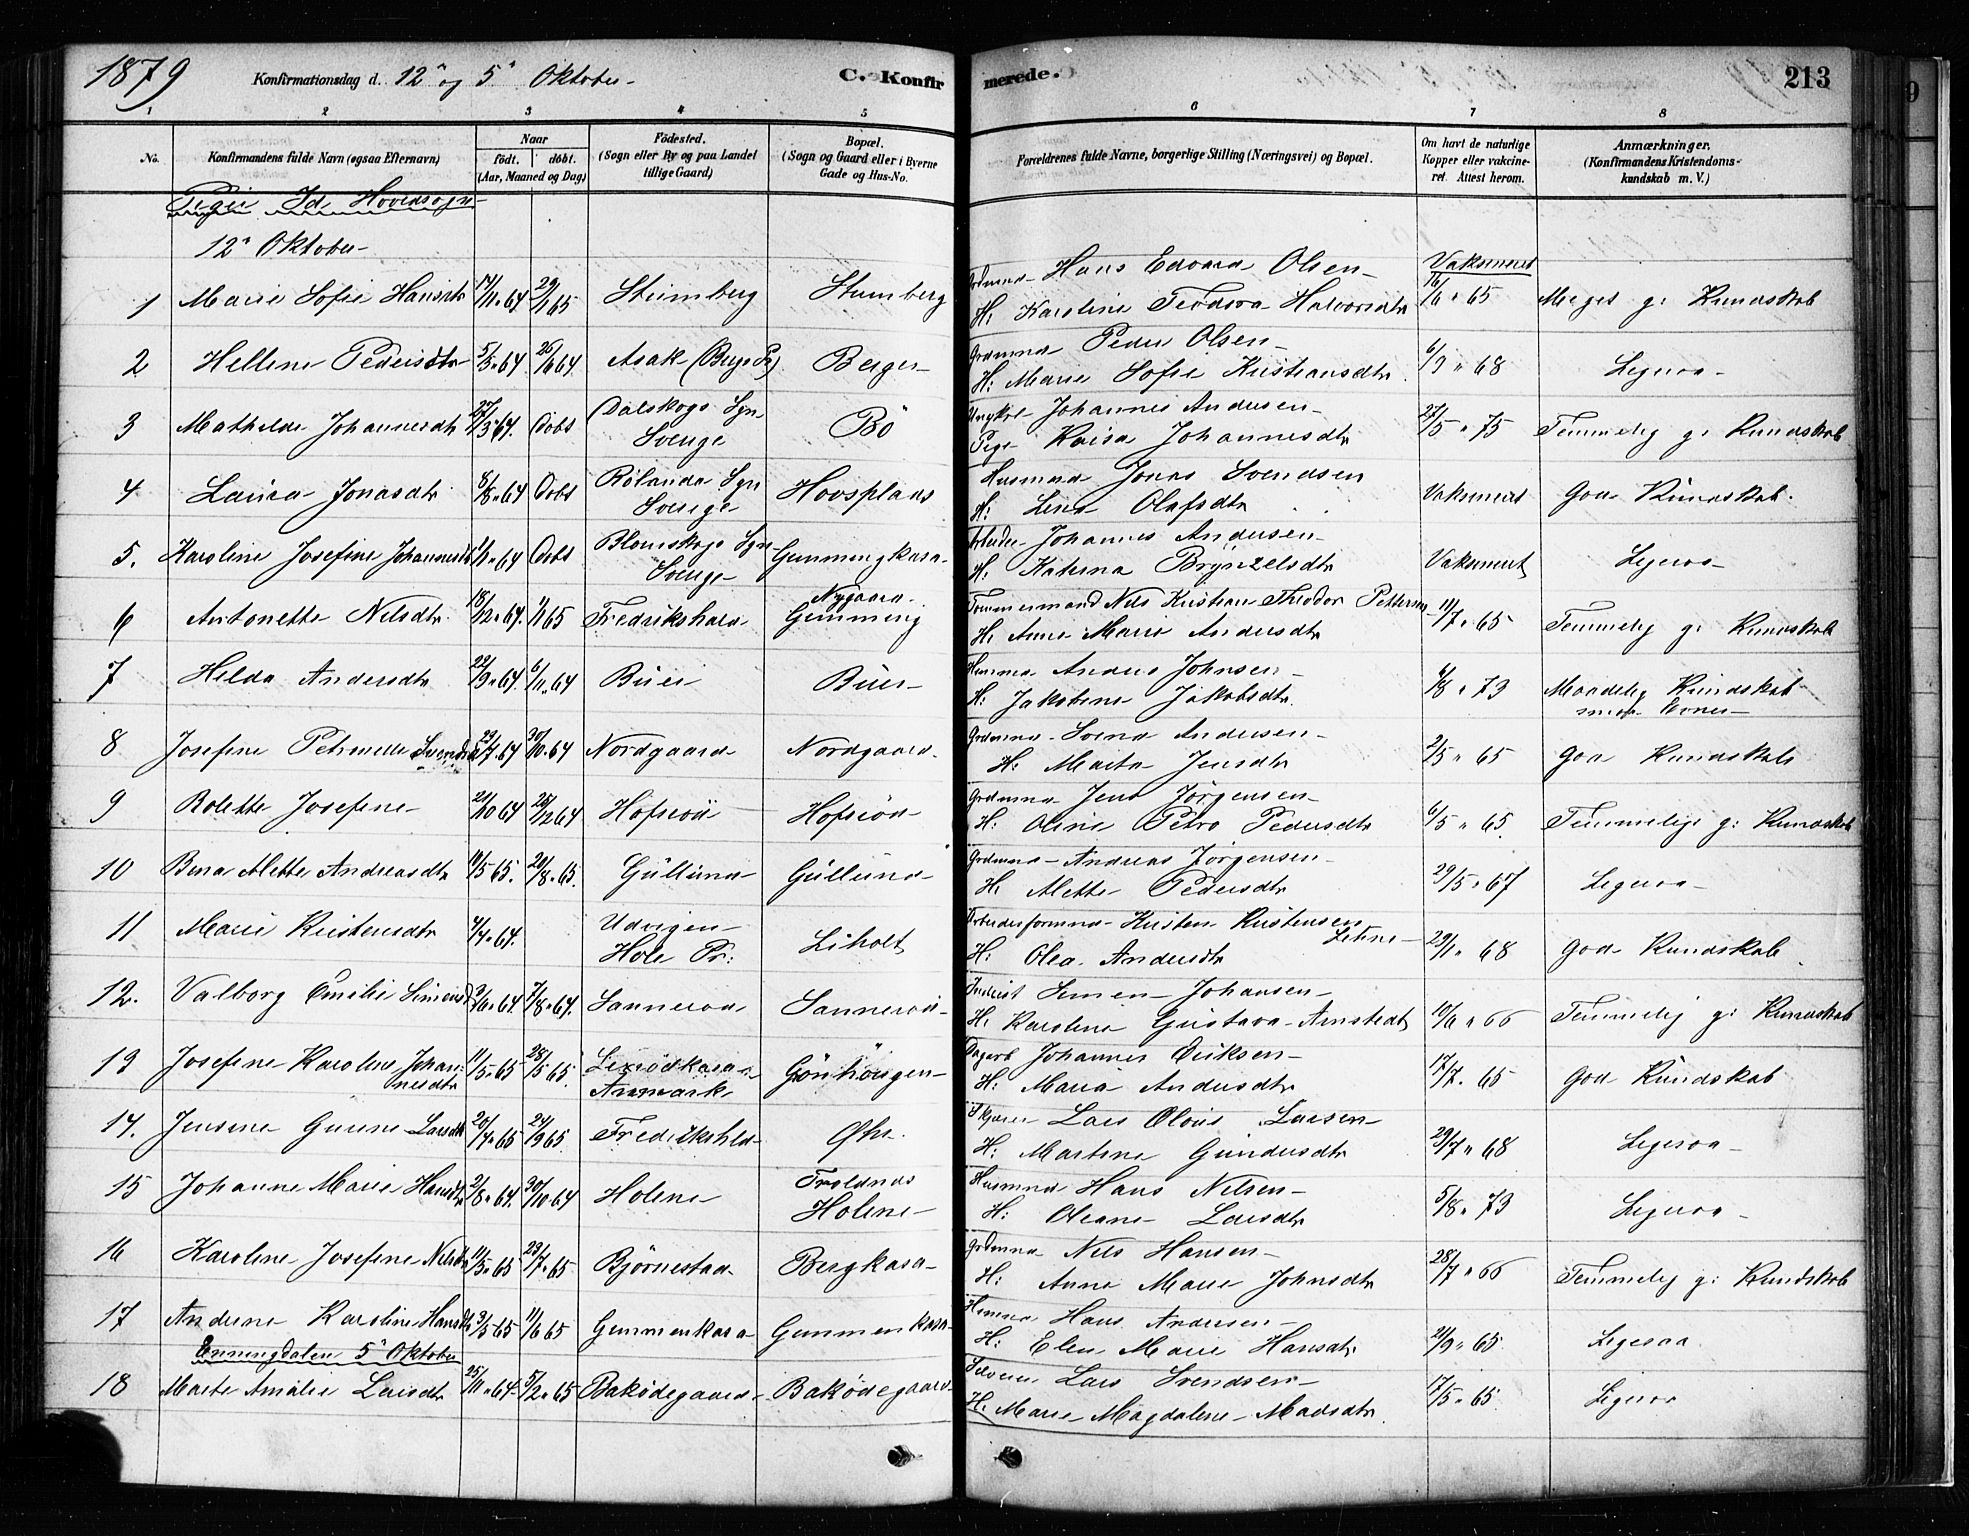 1879 Konfirmationsdag d. 12" og 5" Oktober C. Konfirmerede. 213
1 2 3 4 5 6 7 8
No. Konfirmandens fulde Navn (ogsaa Efternavn) Naar født. døbt. (Aar, Maaned og Dag) Fødested. (Sogn eller By og paa Landet tillige Gaard) Bopæl. (Sogn og Gaard eller i Byerne Gade og Hus-No. Forældrenes fulde Navne, borgerlige Stilling (Næringsvei) og Bopæl. Om havt de naturlige Kopper eller vakcineret. Attest herom. Anmærkninger. (Konfirmandens Kristendomskundskab m. V.)
Piger Id Hovedsogn
12" Oktober
Vaksineret
1 Marie Sofie Hansdtr 64 65 Gdmand Hans Edvard Olsen
H: Karoline Teodora Halvorsdtr 16/6 " 65 Meget g: Kundskab
2 Hellene Pedersdtr 64 64 Asak (Berg Pr) Berger Grdmand Peder Olsen
H: Marie Sofie Kristiansdtr 68 Ligesaa
3 Mathilde Johannesdtr 27/3 64. Døbt Dalskogs Sgn Sverige Bö Ungkrl Johannes Andersen
Pige Kaisa Johannesdtr 27/5 " 75 Temmelig g: Kundskab
4 Laura Jonasdtr 6/8 " 64 Døbt Rölanda Sgn Sverige Hovsplads Husmand Jonas Svendsen
H: Lena Olafsdtr Vaksineret God Kundskab.
5. Karoline Josefine Johannesdtr 64 Døbt Blomskogs Sgn Sverige Johannes Andersen
H: Katrina Vaksineret Ligesaa
6 Antonette Nilsdtr 18/12 " 64. 1/1 65 Fredrikshald Nygaard Gimming Tømmermand Nils Kristian Theodor Pettersen
H: Anne Marie Andersdtr 11/7 " 65 Temmelig g: Kundskab
7 Hilda Andersdtr 22/9 " 64. 6/11 " 64 Büer Büer Anders Johnsen
H: Jakobine Jakobsdtr. 6/8 " 73 Maadelig Kundskab
smaa Evner
8 Josefine Petrnelle Svendsdtr 64 30/10 " 64 Nordgaard Nordgaard. Grdmand Svend Andersen
H: Marta Jensdtr 2/5 " 65 God Kundskab
9 Rolette Josefine 21/10 64 26/12 64 Hofsröd Hofsröd Grdmand Jens Jørgensen
H: Oline Petro Pedersdtr 6/5 " 65 Temmelig g: Kundskab
10 Bina Alette Andreasdtr 19/5 65. 20/8 " 65. Güllund Güllund Grdmand Andreas Jørgensen
H: Alette Pedersdtr 29/5 " 67 Ligesaa
11 Marie Kristensdtr 4/4 " 64. Udvigen Hole Pr: Liholt Arbeidsformnd Kristen Kristensen
H: Olea Andersdtr 29/1 " 68 God Kundskab
12. Valborg Emilie Simensdtr 64 7/8 " 64. Sanneröd Sanneröd Simen Johansen
H: Karoline Gustava 10/6 " 66 Temmelig g: Kundskab
13 Josefine Karoline Johannesdtr 11/5 " 65 28/5 65. Anmark Johannes Eriksen
H: Maria Andersdtr 17/7 " 65 God Kundskab
14. Jensine Gurine Larsdtr 20/4 " 65 24/9 65 Fredrikshld Lars Olous Larsen
H: Martine Gundersdtr 29/7 " 68 Ligesaa
15 Johanne Marie Hansdtr 2/8 " 64. 30/10 " 64 Holene Holene Husmnd Hans Nilsen
H: Oleane Larsdtr 5/8 " 73 Ligesaa
16 Karoline Josefine Nilsdtr 11/5 " 65 23/7 " 65 Bjørnestad Bergkasa Grdmnd Nils Hansen
H: Anne Marie Johnsdtr 28/7 " 66 Temmelig g: Kundskab
17 Andrine Karoline Hansdtr 3/5 65 11/6 65 Gimmenkasa Gimmenkasa Hans Andersen
H: Elen Marie Hansdtr 21/9 " 65 Ligesaa
Enningdalen 5" Oktober
18 Marte Amalie Larsdtr 25/11 " 64. 5/2 " 65 Bakødegaard Bakødegaard Selveier Lars Svendsen
H: Marie Magdalene Madsdtr. 17/5 " 65 Ligesaa